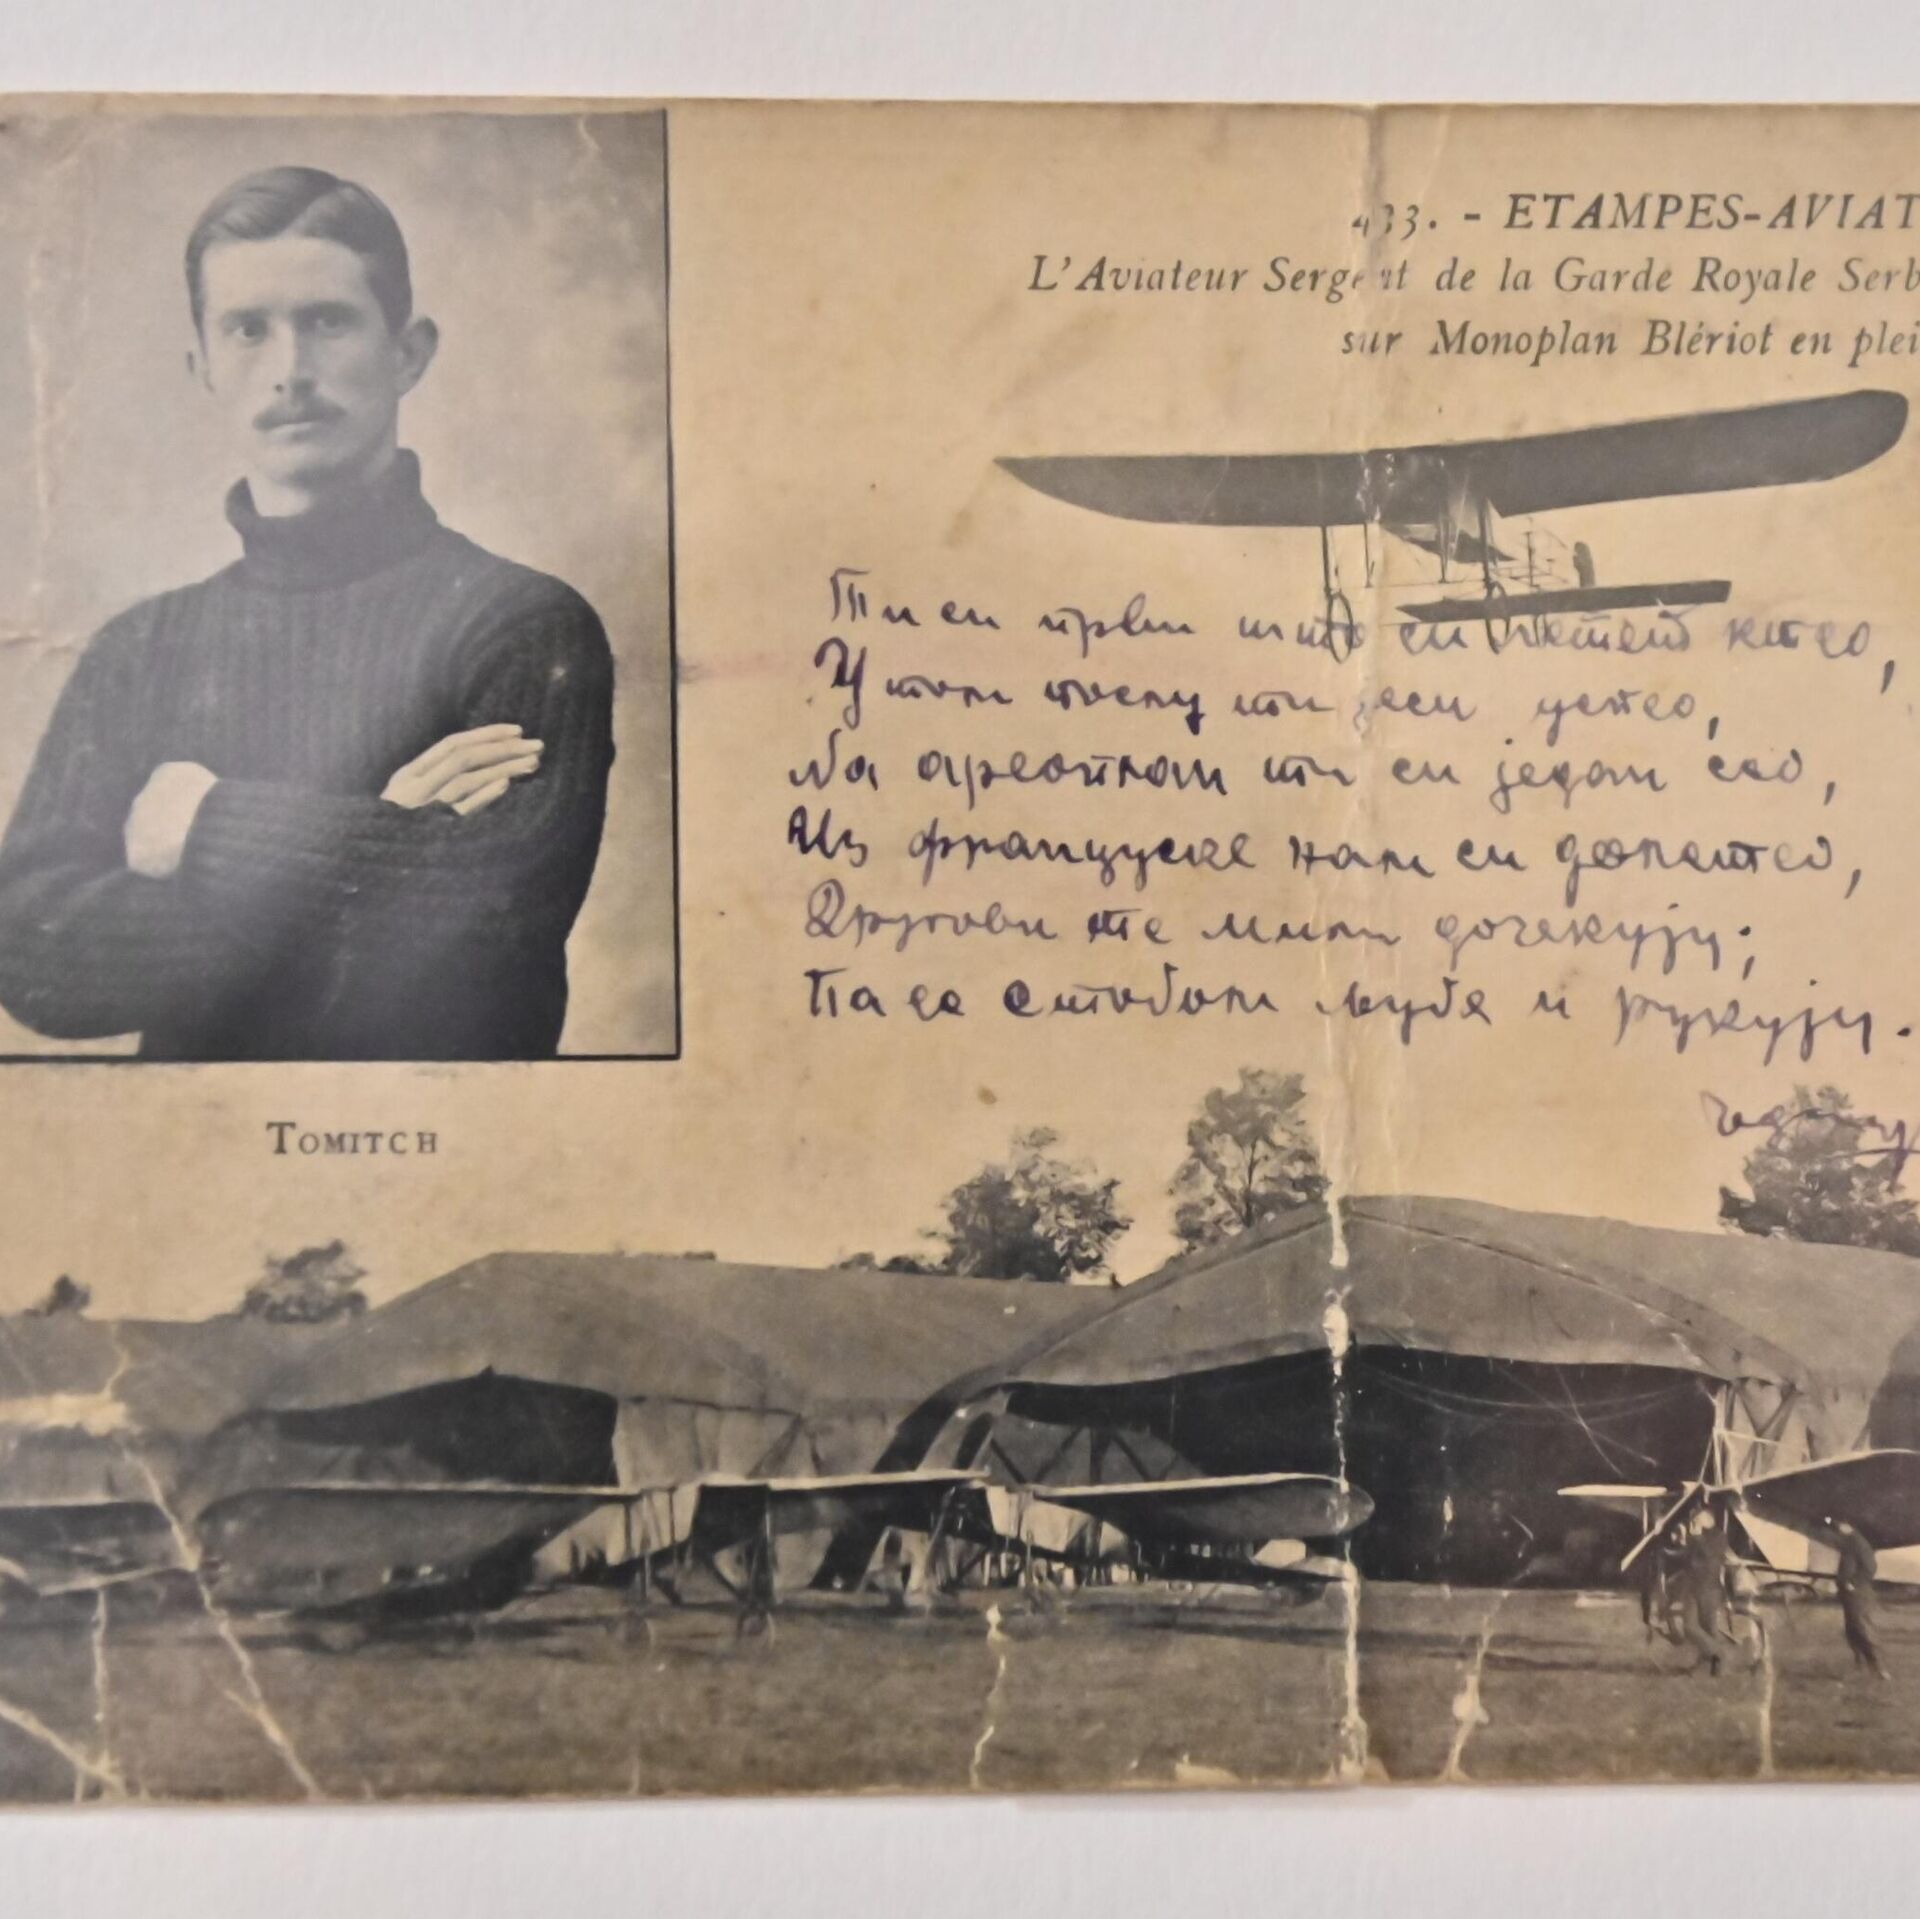 433. - ETAMPES-AVIAT
L'Aviateur Sergent de la Garde Royale Serb
sur Monoplan Blériot en plei
Ти си први што си летет ктео,
У том послу ти јеси успео,
На ареоплан ти си једом сео,
Из француске нам си долетео,
Другови те мили дочекују;
Па се стобом љубе и рукују.
TOMITCH